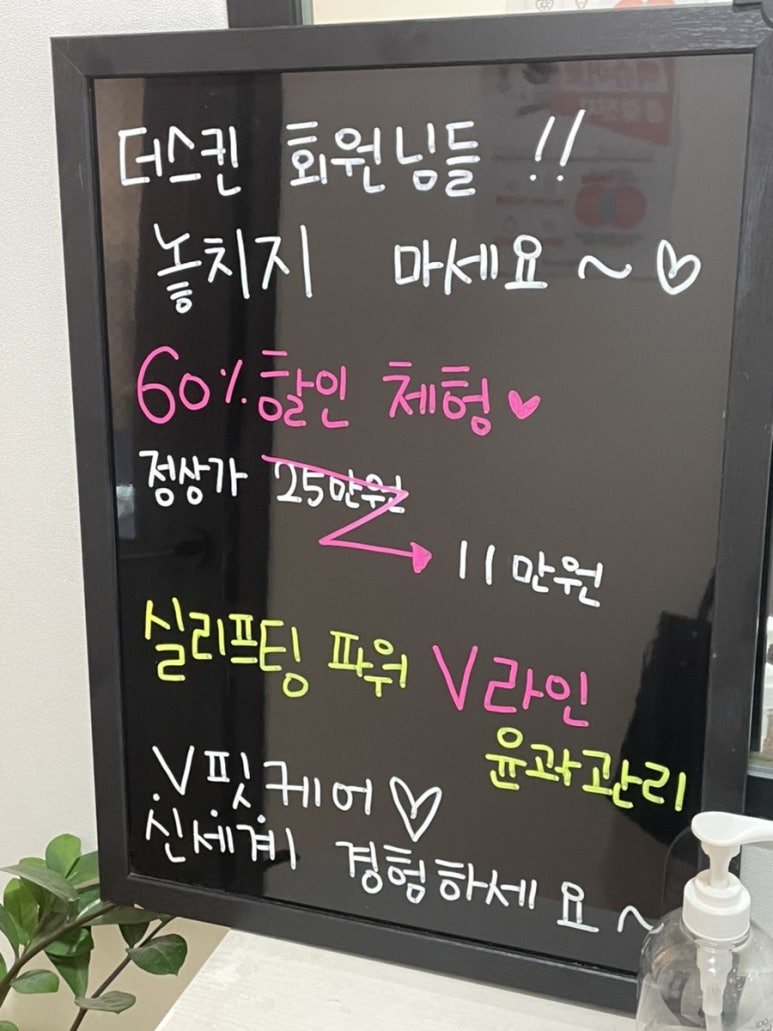 더스킨 회원님들 !!
놓치지 마세요~♡
60%할인 체험♥
정상가 25만원
→ 11만원
실리프팅 파워 V라인
윤곽관리
V핏케어♡
신세계 경험하세요~